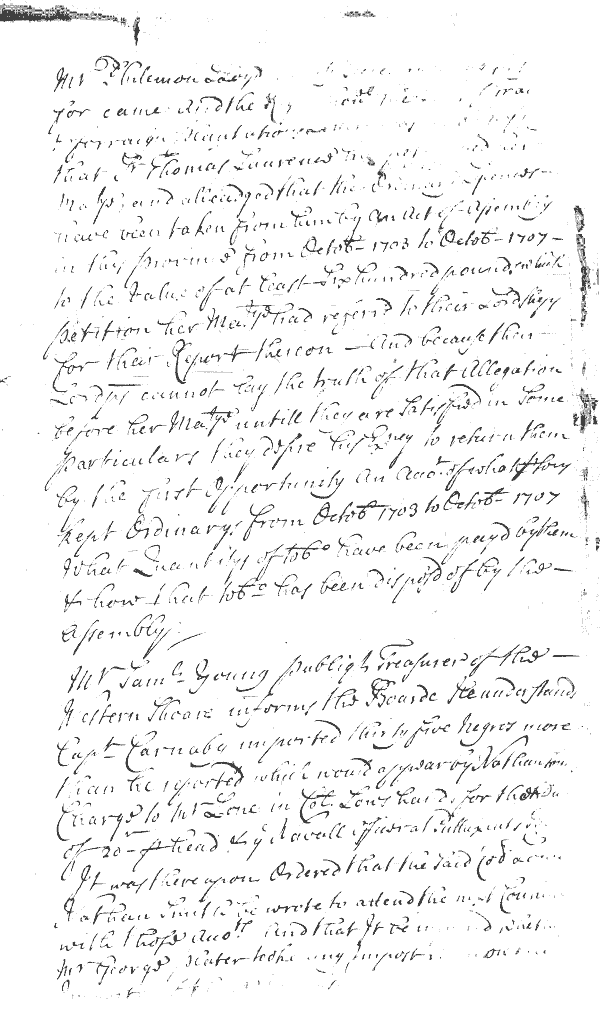 Mr Philemon Lloyd
for came and the
fforraign Plantations
that Sr Thomas Laurence
Matys and alleadged that the Ordinary Lycences
have been taken from him by an Act of Assembly
in this Province from Octobr 1703 to Octobr 1707
to the value of at least Six hundred pounds which
petition her Matys had referrd to their Lordships
for their Report thereon — And because their
Lordps cannot lay the truth of that Allegation
before her Matye untill they are Satisfied in Some
particulars they desire his Exncy to return them
by the first Opportunity an Acct of what psons
kept Ordinarys from Octobr 1703 to Octobr 1707
What Quantitys of tobo have been payd by them
& how that tobo has been disposd of by the —
Assembly
Mr Samll Young publiqh Treasurer of the —
Western Shoare informs the Boarde he understands
Capt Carnaby imported thirty five Negros more
than he reported which would appear by Nathan
Charge to Mr Lone in Col. Lows hands for the
of 20s p head & ye Navall Officer
It was thereupon Ordered that the said Cod
Nathan Smith be wrote to attend the next Councill
with those Accots And that It be
Mr George Slater tooke any impost on